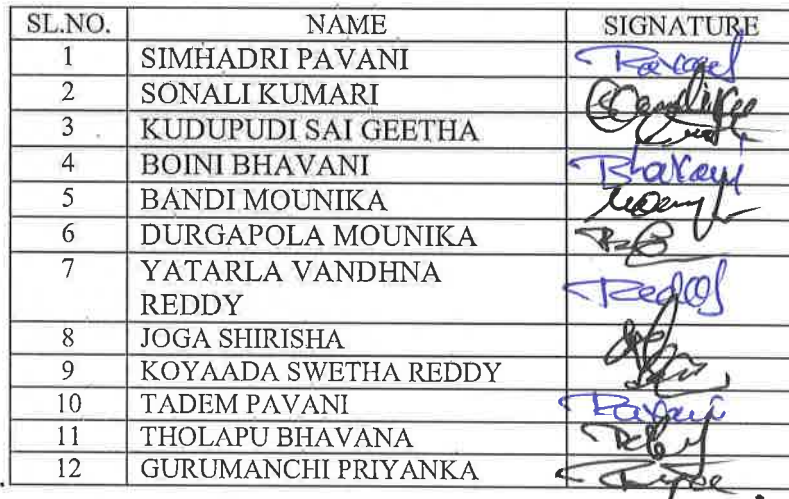 SL.NO. NAME SIGNATURE
1 SIMHADRI PAVANI
2 SONALI KUMARI
3 KUDUPUDI SAI GEETHA
4 BOINI BHAVANI Bhavani
5 BANDI MOUNIKA
6 DURGAPOLA MOUNIKA
7 YATARLA VANDHNA
REDDY
8 JOGA SHIRISHA
9 KOYAADA SWETHA REDDY
10 TADEM PAVANI
11 THOLAPU BHAVANA
12 GURUMANCHI PRIYANKA